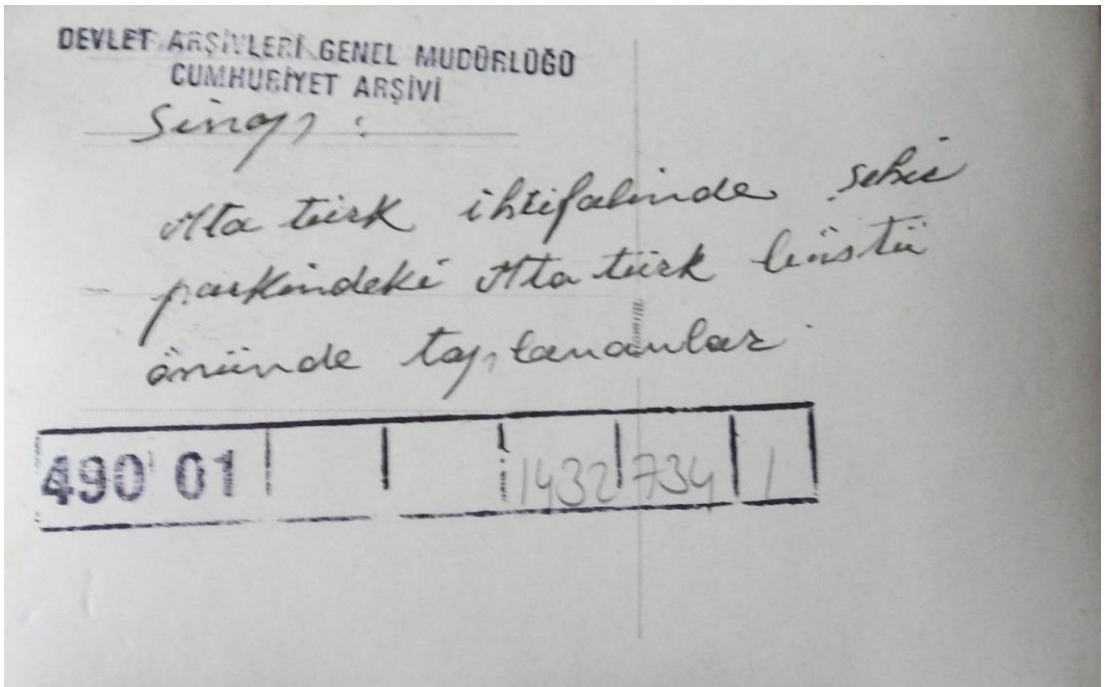 DEVLET ARŞİVLERİ GENEL MÜDÜRLÜĞÜ
CUMHURİYET ARŞİVİ
Sinop :
Ata türk ihtifalinde şehir
parkindeki Ata türk büstü
önünde toplananlar
490 01 1432 734 1